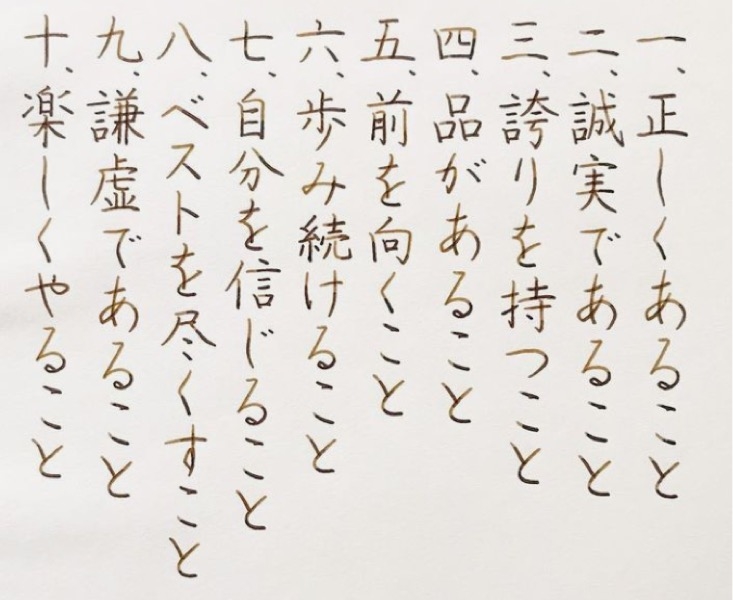 一、正しくあること
二、誠実であること
三、誇りを持つこと
四、品があること
五、前を向くこと
六、歩み続けること
七、自分を信じること
八、ベストを尽くすこと
九、謙虚であること
十、楽しくやること